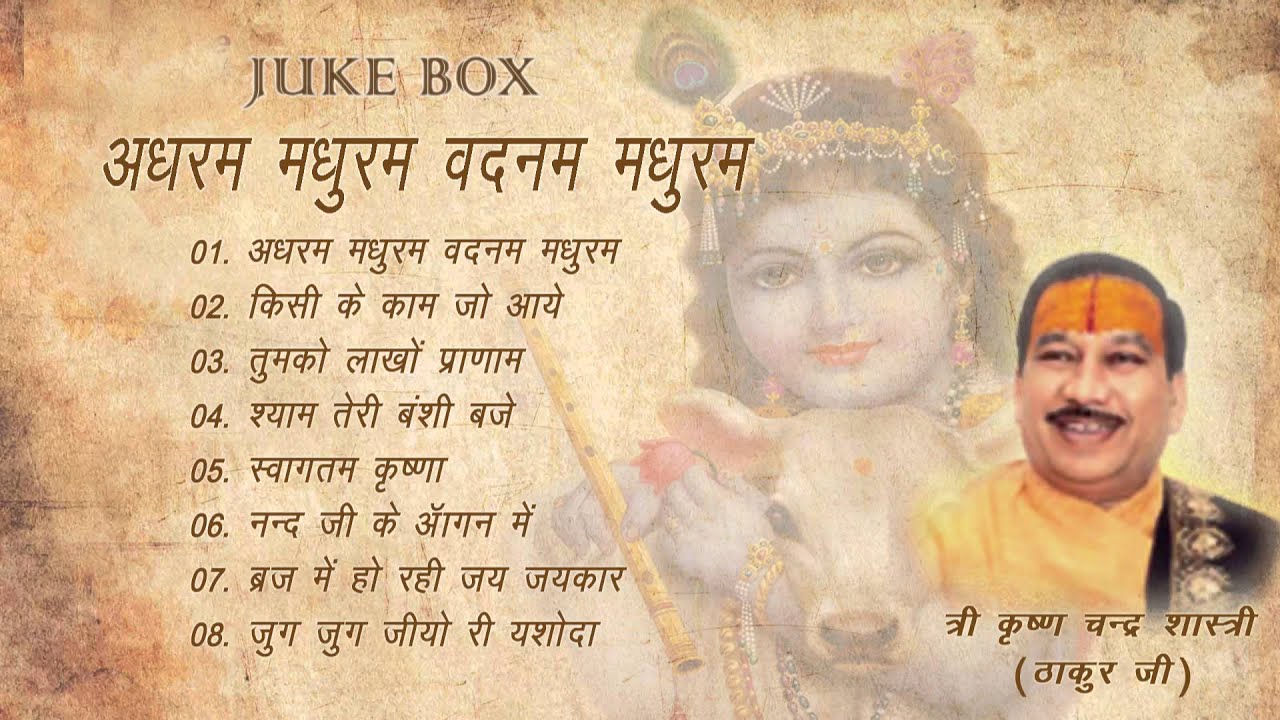 JUKE BOX
अधरम मधुरम वदनम मधुरम
01. अधरम मधुरम वदनम मधुरम
02. किसी के काम जो आये
03. तुमको लाखों प्राणाम
04. श्याम तेरी बंशी बजे
05. स्वागतम कृष्णा
06. नन्द जी के ऑगन में
07. ब्रज में हो रही जय जयकार
08. जुग जुग जीयो री यशोदा
त्री कृष्ण चन्द्र शास्त्री
(ठाकुर जी)